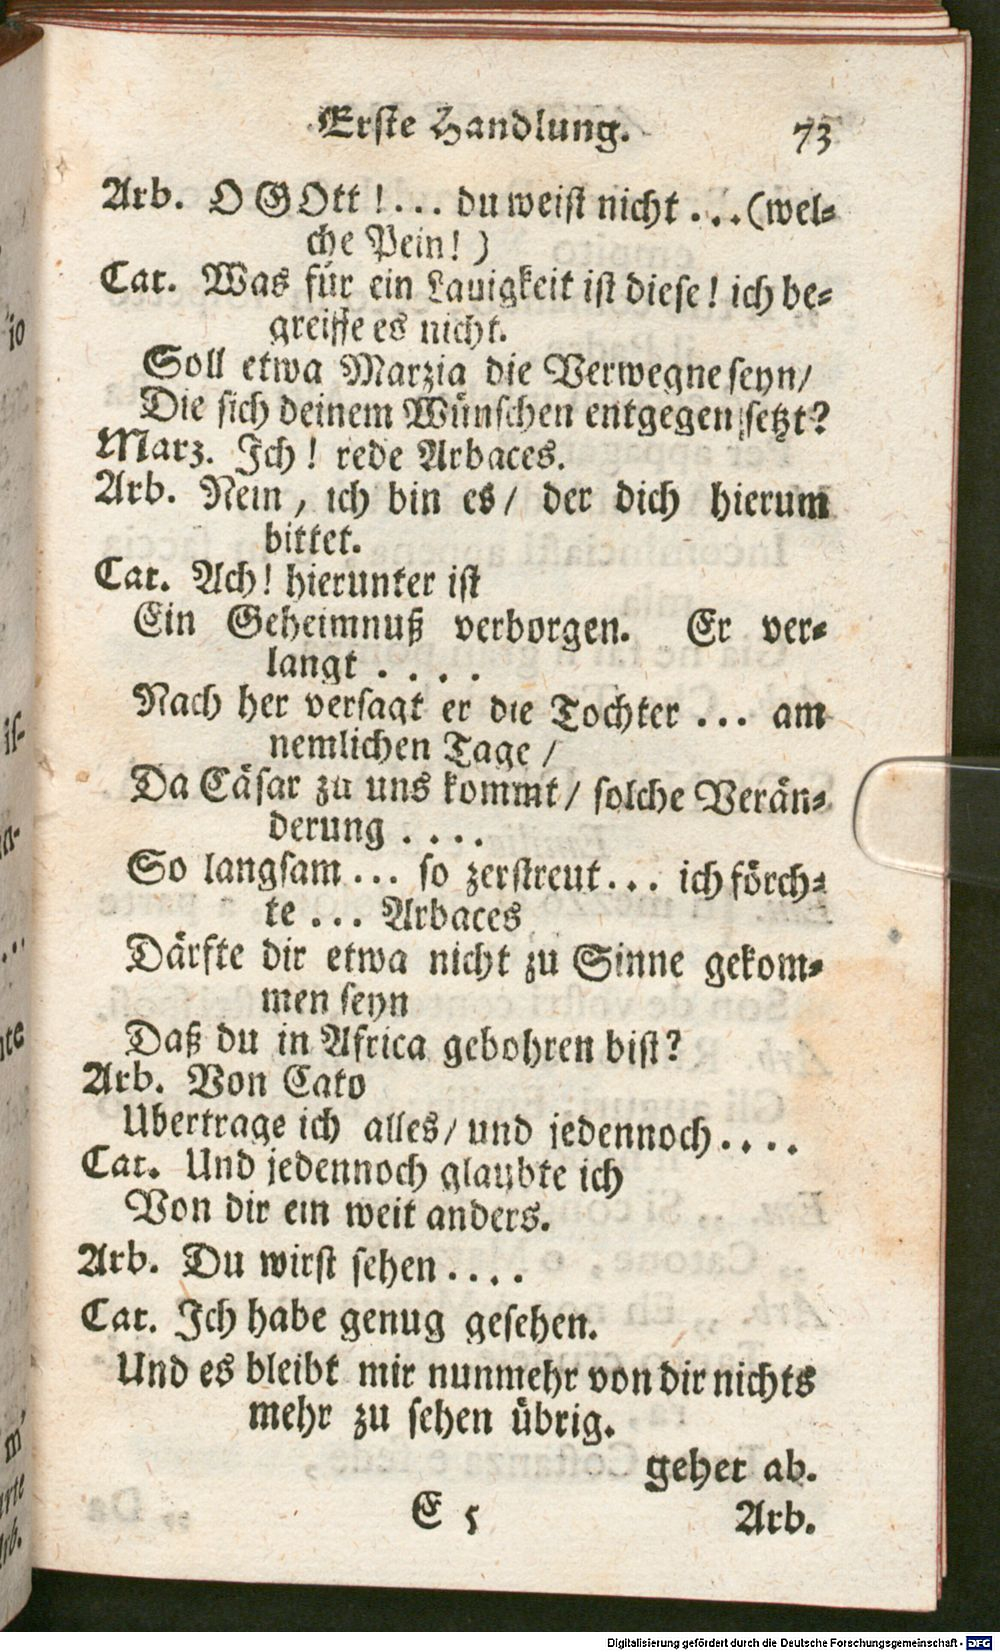 Erste Handlung. 73
Arb. O GOtt! ... du weist nicht ... (wel-
che Pein!)
Cat. Was für ein Lauigkeit ist diese! ich be-
greiffe es nicht.
Soll etwa Marzia die Verwegne seyn/
Die sich deinem Wünschen entgegen setzt?
Marz. Ich! rede Arbaces.
Arb. Nein, ich bin es/ der dich hierum
bittet.
Cat. Ach! hierunter ist
Ein Geheimnuß verborgen. Er ver-
langt ....
Nach her versagt er die Tochter ... am
nemlichen Tage/
Da Cäsar zu uns kommt/ solche Verän-
derung ....
So langsam ... so zerstreut ... ich förch-
te ... Arbaces
Därfte dir etwa nicht zu Sinne gekom-
men seyn
Daß du in Africa gebohren bist?
Arb. Von Cato
Ubertrage ich alles/ und jedennoch ....
Cat. Und jedennoch glaubte ich
Von dir ein weit anders.
Arb. Du wirst sehen ....
Cat. Ich habe genug gesehen.
Und es bleibt mir nunmehr von dir nichts
mehr zu sehen übrig.
gehet ab.
E 5 Arb.
Digitalisierung gefördert durch die Deutsche Forschungsgemeinschaft - DFG